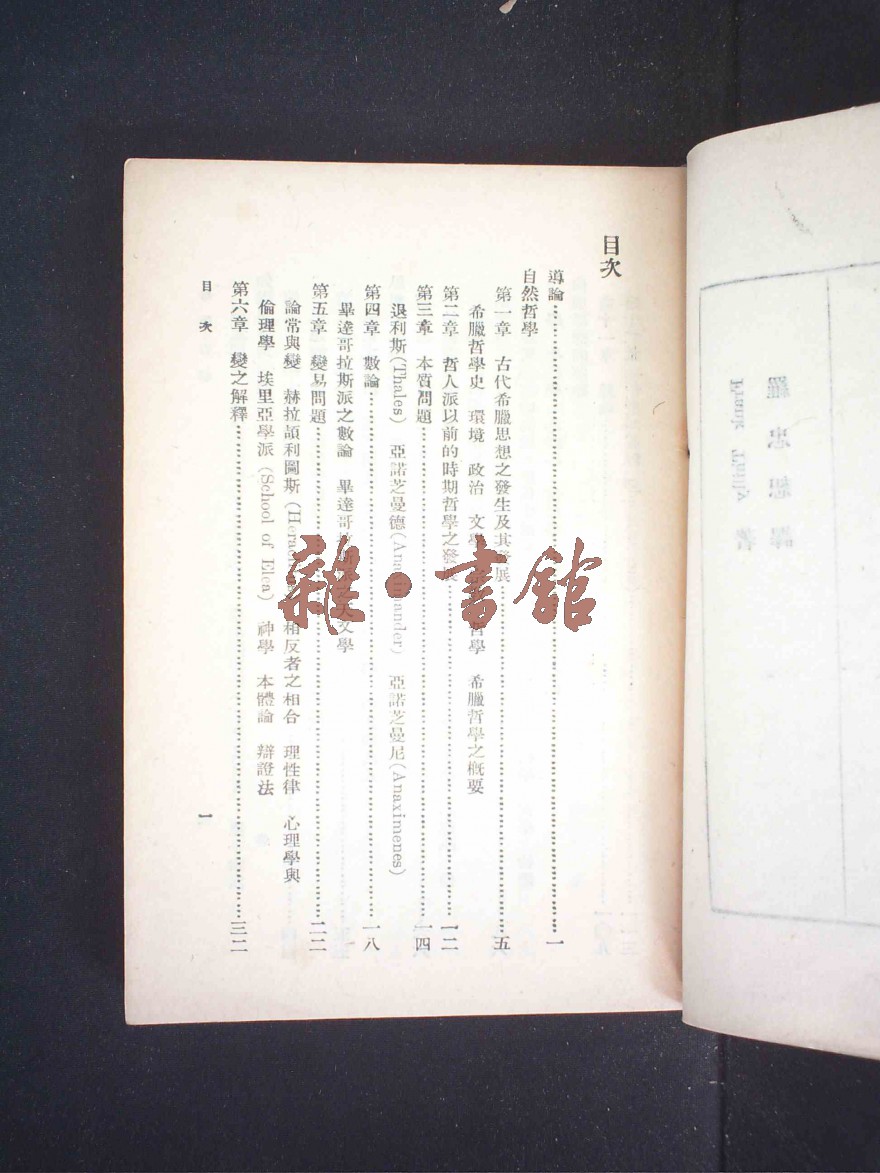 目次
導論……一
自然哲學
第一章 古代希臘思想之發生及其發展……五
希臘哲學史 環境 政治 文學 哲學 希臘哲學之概要
第二章 哲人派以前的時期哲學之發……一二
第三章 本質問題……一四
退利斯(Thales) 亞諾芝曼德(Ana mander) 亞諾芝曼尼(Anaximenes)
第四章 數論……一八
畢達哥拉斯派之數論 畢達哥拉 文學
第五章 變易問題……二二
論常與變 赫拉頡利圖斯(Hera 相反者之相合 理性律 心理學與
倫理學 埃里亞學派(School of Elea) 神學 本體論 辯證法
第六章 變之解釋……三二
目次
一
雜·書館
Frank Thilly 著
羅忠恕譯